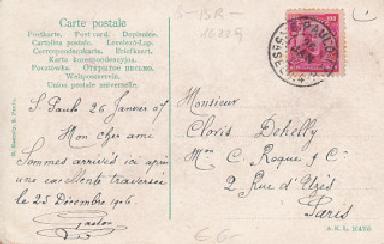 Carte postale
Postkarte. Postcard. Dopisnice.
Cartolina postale. Levelező-Lap.
Correspondenzkarte. Briefkort.
Karta korespondencyjna.
Pocztówka. Открытое письмо.
Weltpostverein.
Union postale universelle.
S. Paulo 26 Janvier 07
Mon cher ami
Sommes arrivés ici après
une excellente traversée
le 25 Décembre 1906
Gaston
Monsieur
Cloris Dehelly
Mon C. Roque & Cie
2 Rue d'Uzès
Paris
S. PAULO
100
BR-